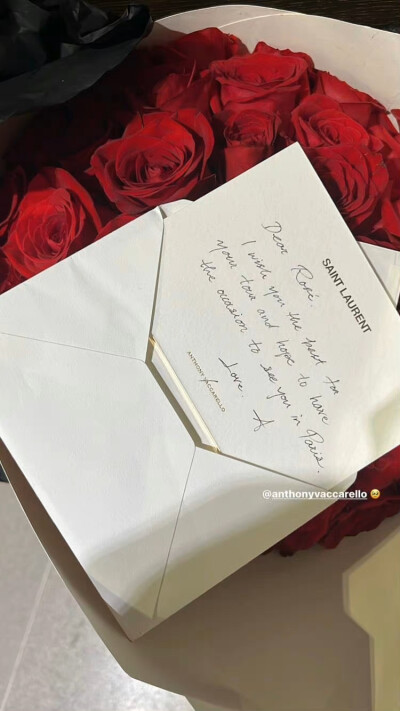 SAINT LAURENT
Dear Rosé.
I wish you the best for
your tour and hope to have
the occasion to see you in Paris.
Love.
A
ANTHONY VACCARELLO
@anthonyvaccarello 🥹